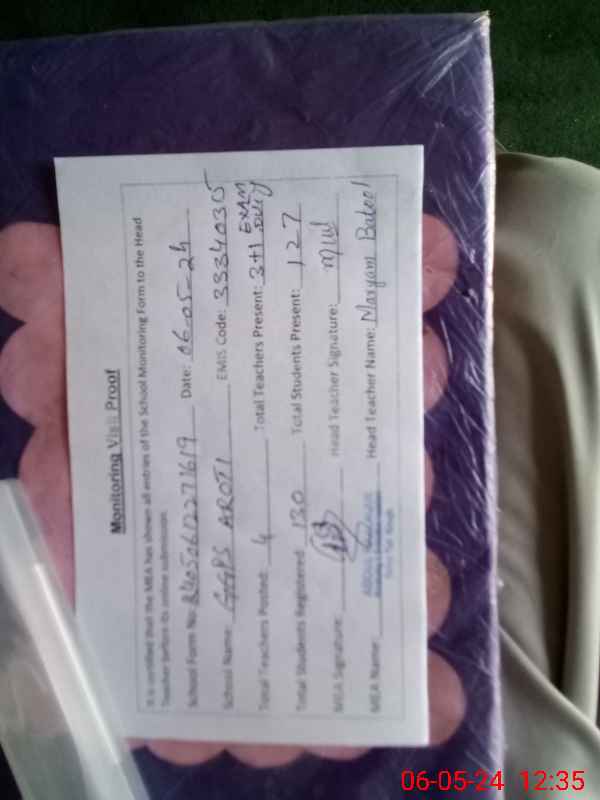 Monitoring Visit Proof
It is certified that the MEA has shown all entries of the School Monitoring Form to the Head
Teacher before its online submission.
School Form No: Date: 06-05-24
School Name: GGPS AROTI EMIS Code: 33340305
Total Teachers Posted: 4 Total Teachers Present: 3+1 EXAM Duty
Total Students Registered: 130 Total Students Present: 127
MEA Signature: Head Teacher Signature:
MEA Name: Head Teacher Name: Maryam Batool
ABDUL
06-05-24 12:35